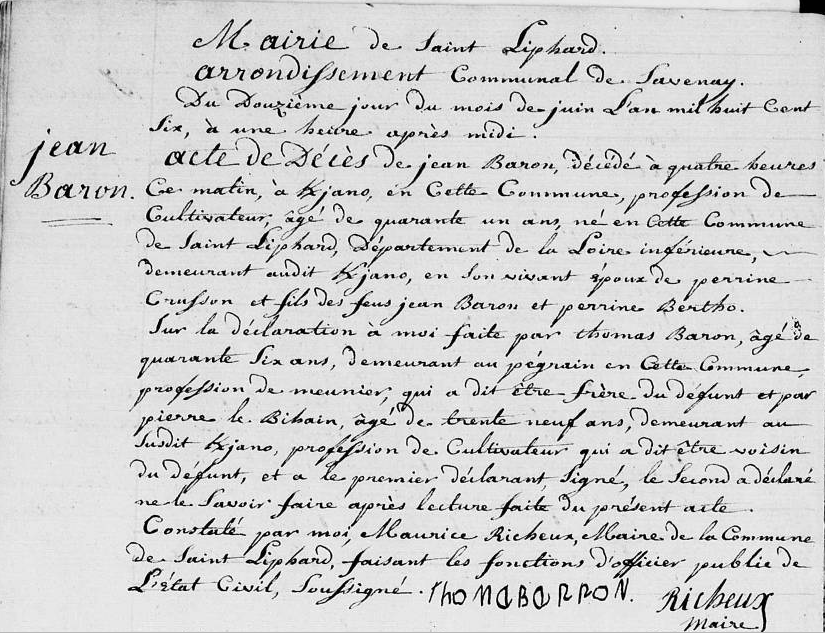 Mairie de Saint Liphard.
arrondissement Communal de Savenay.
Du Douzième jour du mois de juin L'an mil huit Cent
Six, à une heure après midi.
jean
Baron.
acte de Décès de jean Baron, décédé à quatre heures
Ce matin, à Kjano, en Cette Commune, profession de
Cultivateur, âgé de quarante un ans, né en Cette Commune
de Saint Liphard, Département de la Loire inférieure,
demeurant audit Kjano, en son vivant époux de perrine
Crusson et fils des feus jean Baron et perrine Bertho.
Sur la déclaration à moi faite par thomas Baron, âgé de
quarante Six ans, demeurant au pégrain en Cette Commune,
profession de meunier, qui a dit être frère du défunt et par
pierre le Bihain, âgé de trente neuf ans, demeurant au
susdit Kjano, profession de Cultivateur qui a dit être voisin
du défunt, et a le premier déclarant Signé, le Second a déclaré
ne le Savoir faire après lecture faite du présent acte.
Constaté par moi, Maurice Richeux, Maire de la Commune
de Saint Liphard, faisant les fonctions d'officier public de
L'état Civil, Soussigné. THOMABARRON. Richeux
Maire